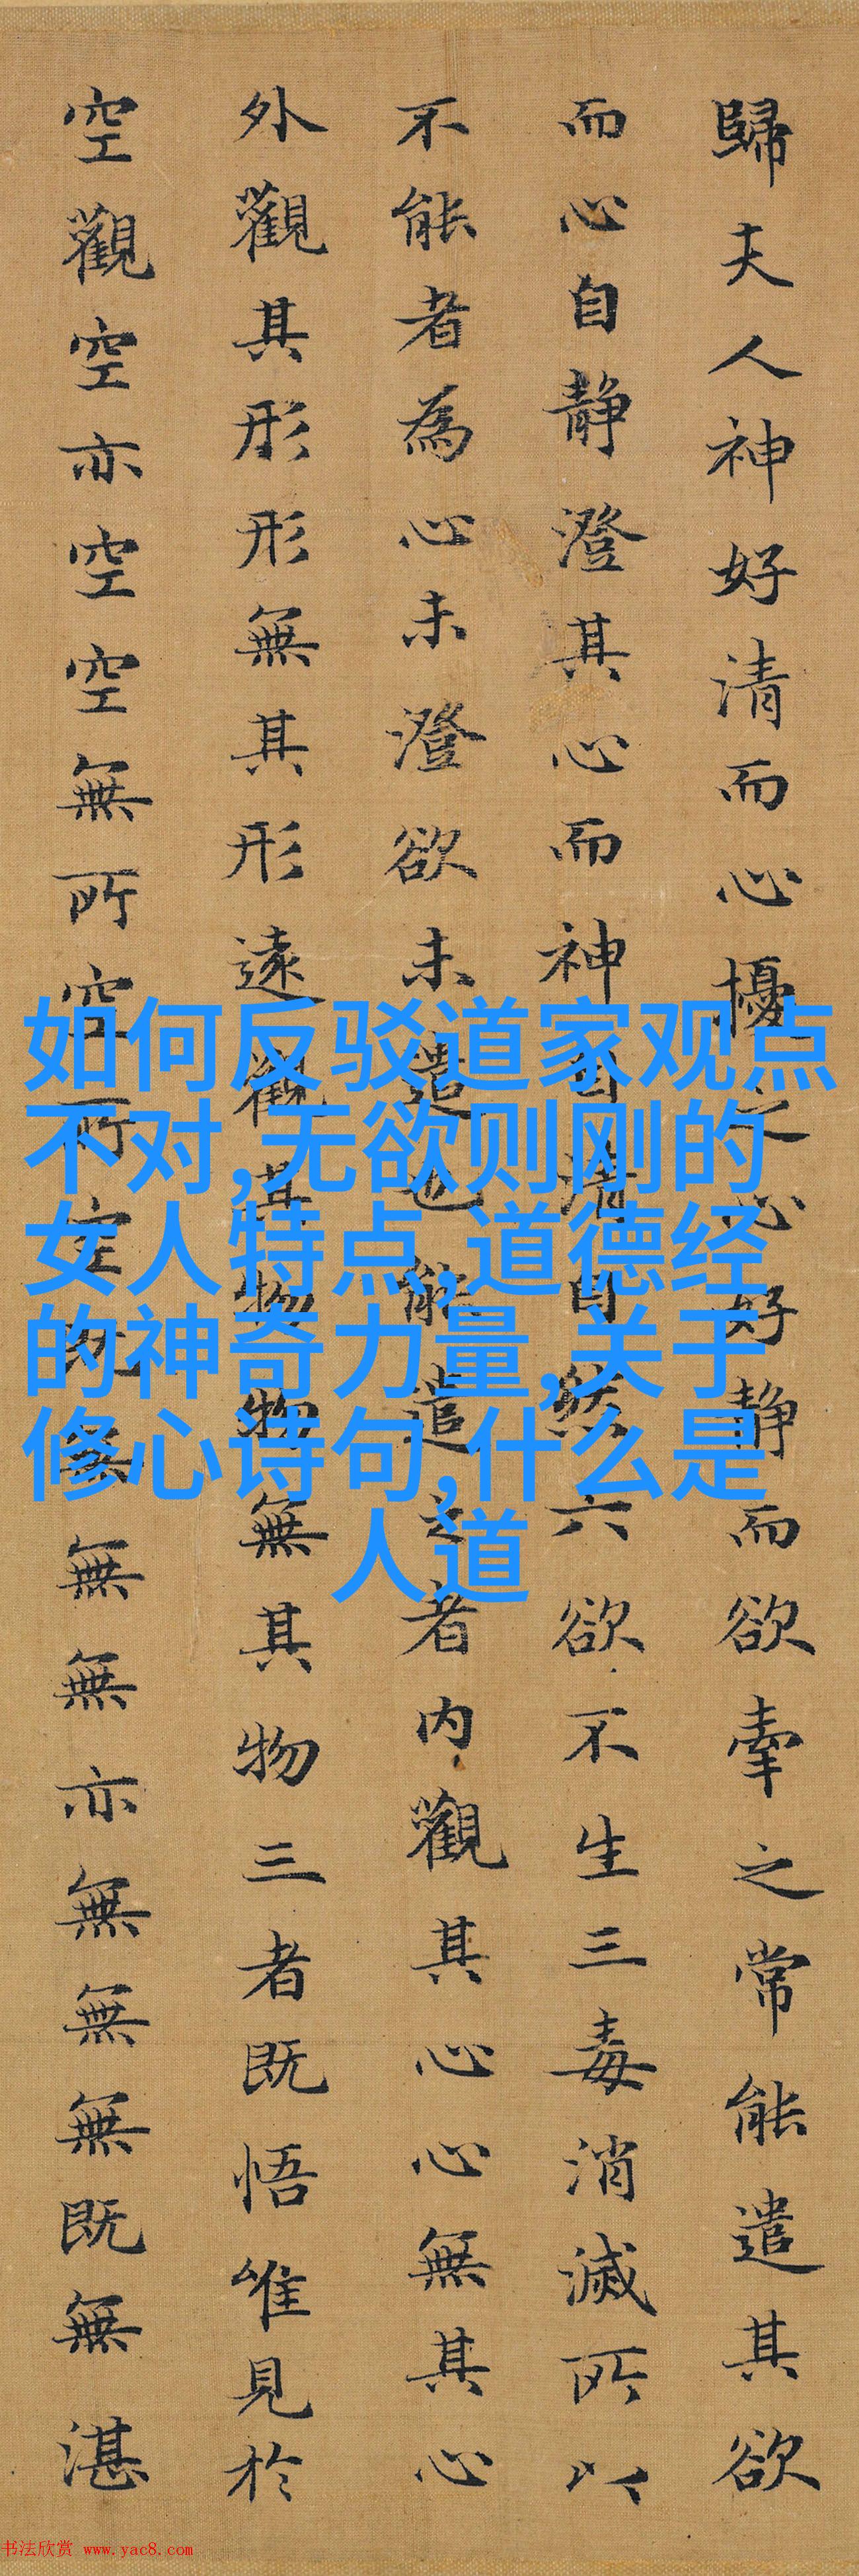 歸夫人神好清而心擾之心好静而欲牽之常能遣其欲
而心自静澄其心而神自清自然六欲不生三毒消滅所以
不能者為心未澄欲未遣也能遣之者内觀其心心無其心
外觀其形形無其形遠觀其物物無其物三者既悟唯見於
空觀空亦空空無所空所空既無無無亦無無無既無湛
如何反驳道家观点
不对,无欲则刚的
女人特点,道德经
的神奇力量,关于
修心诗句,什么是
人道
书法欣赏 www.yac8.com